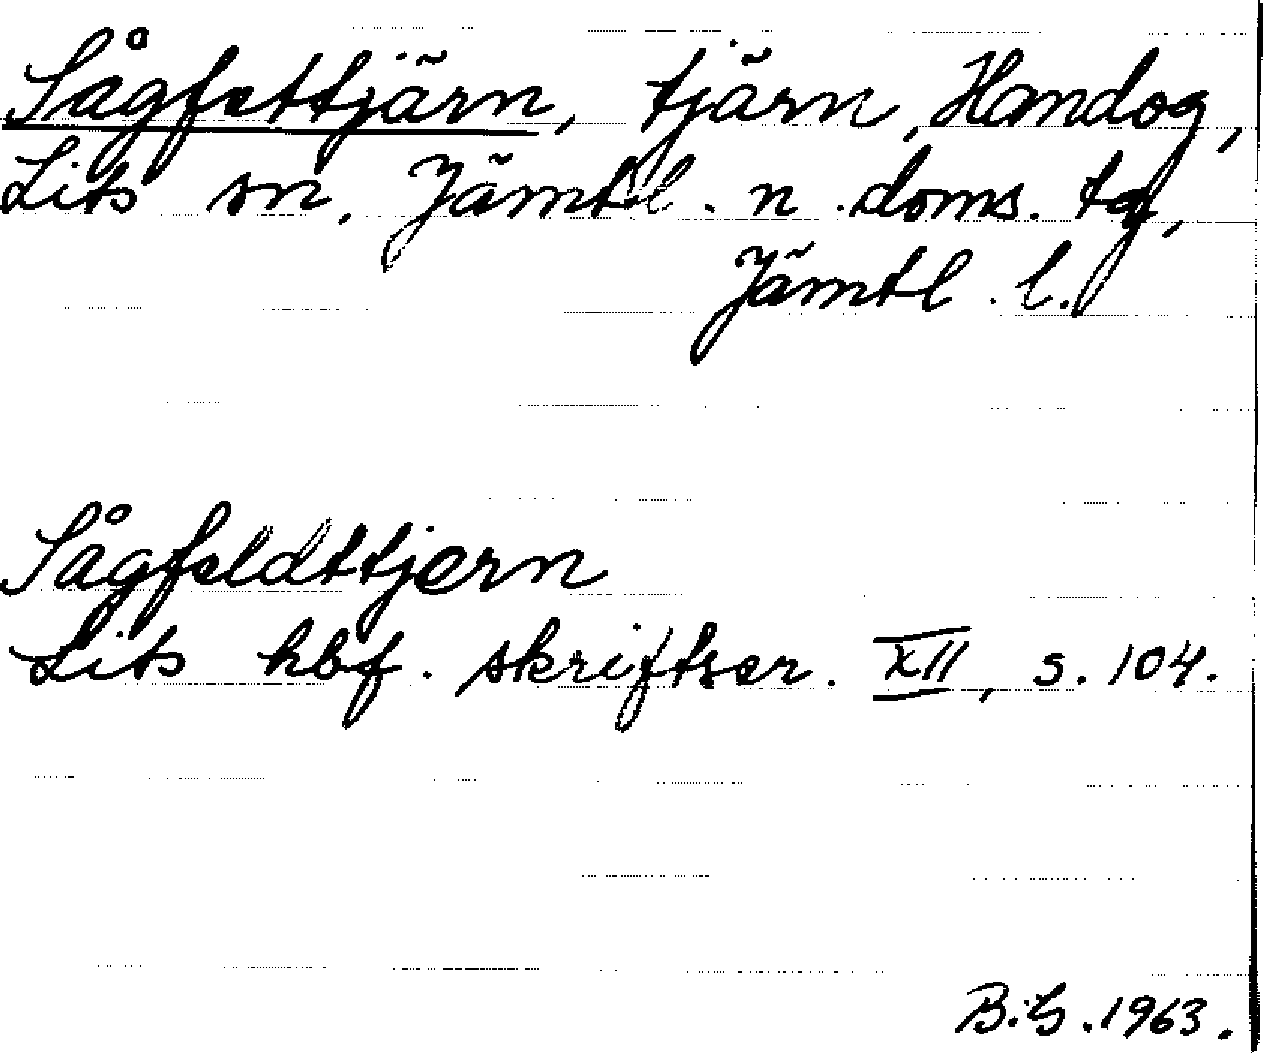 Sågfettjärn, tjärn, Handog,
Lits sn, Jämtl. n. doms. tg,
Jämtl. l.
Sågfeldttjern
Lits hbf. skriftser. XII, s. 104.
B.G. 1963.